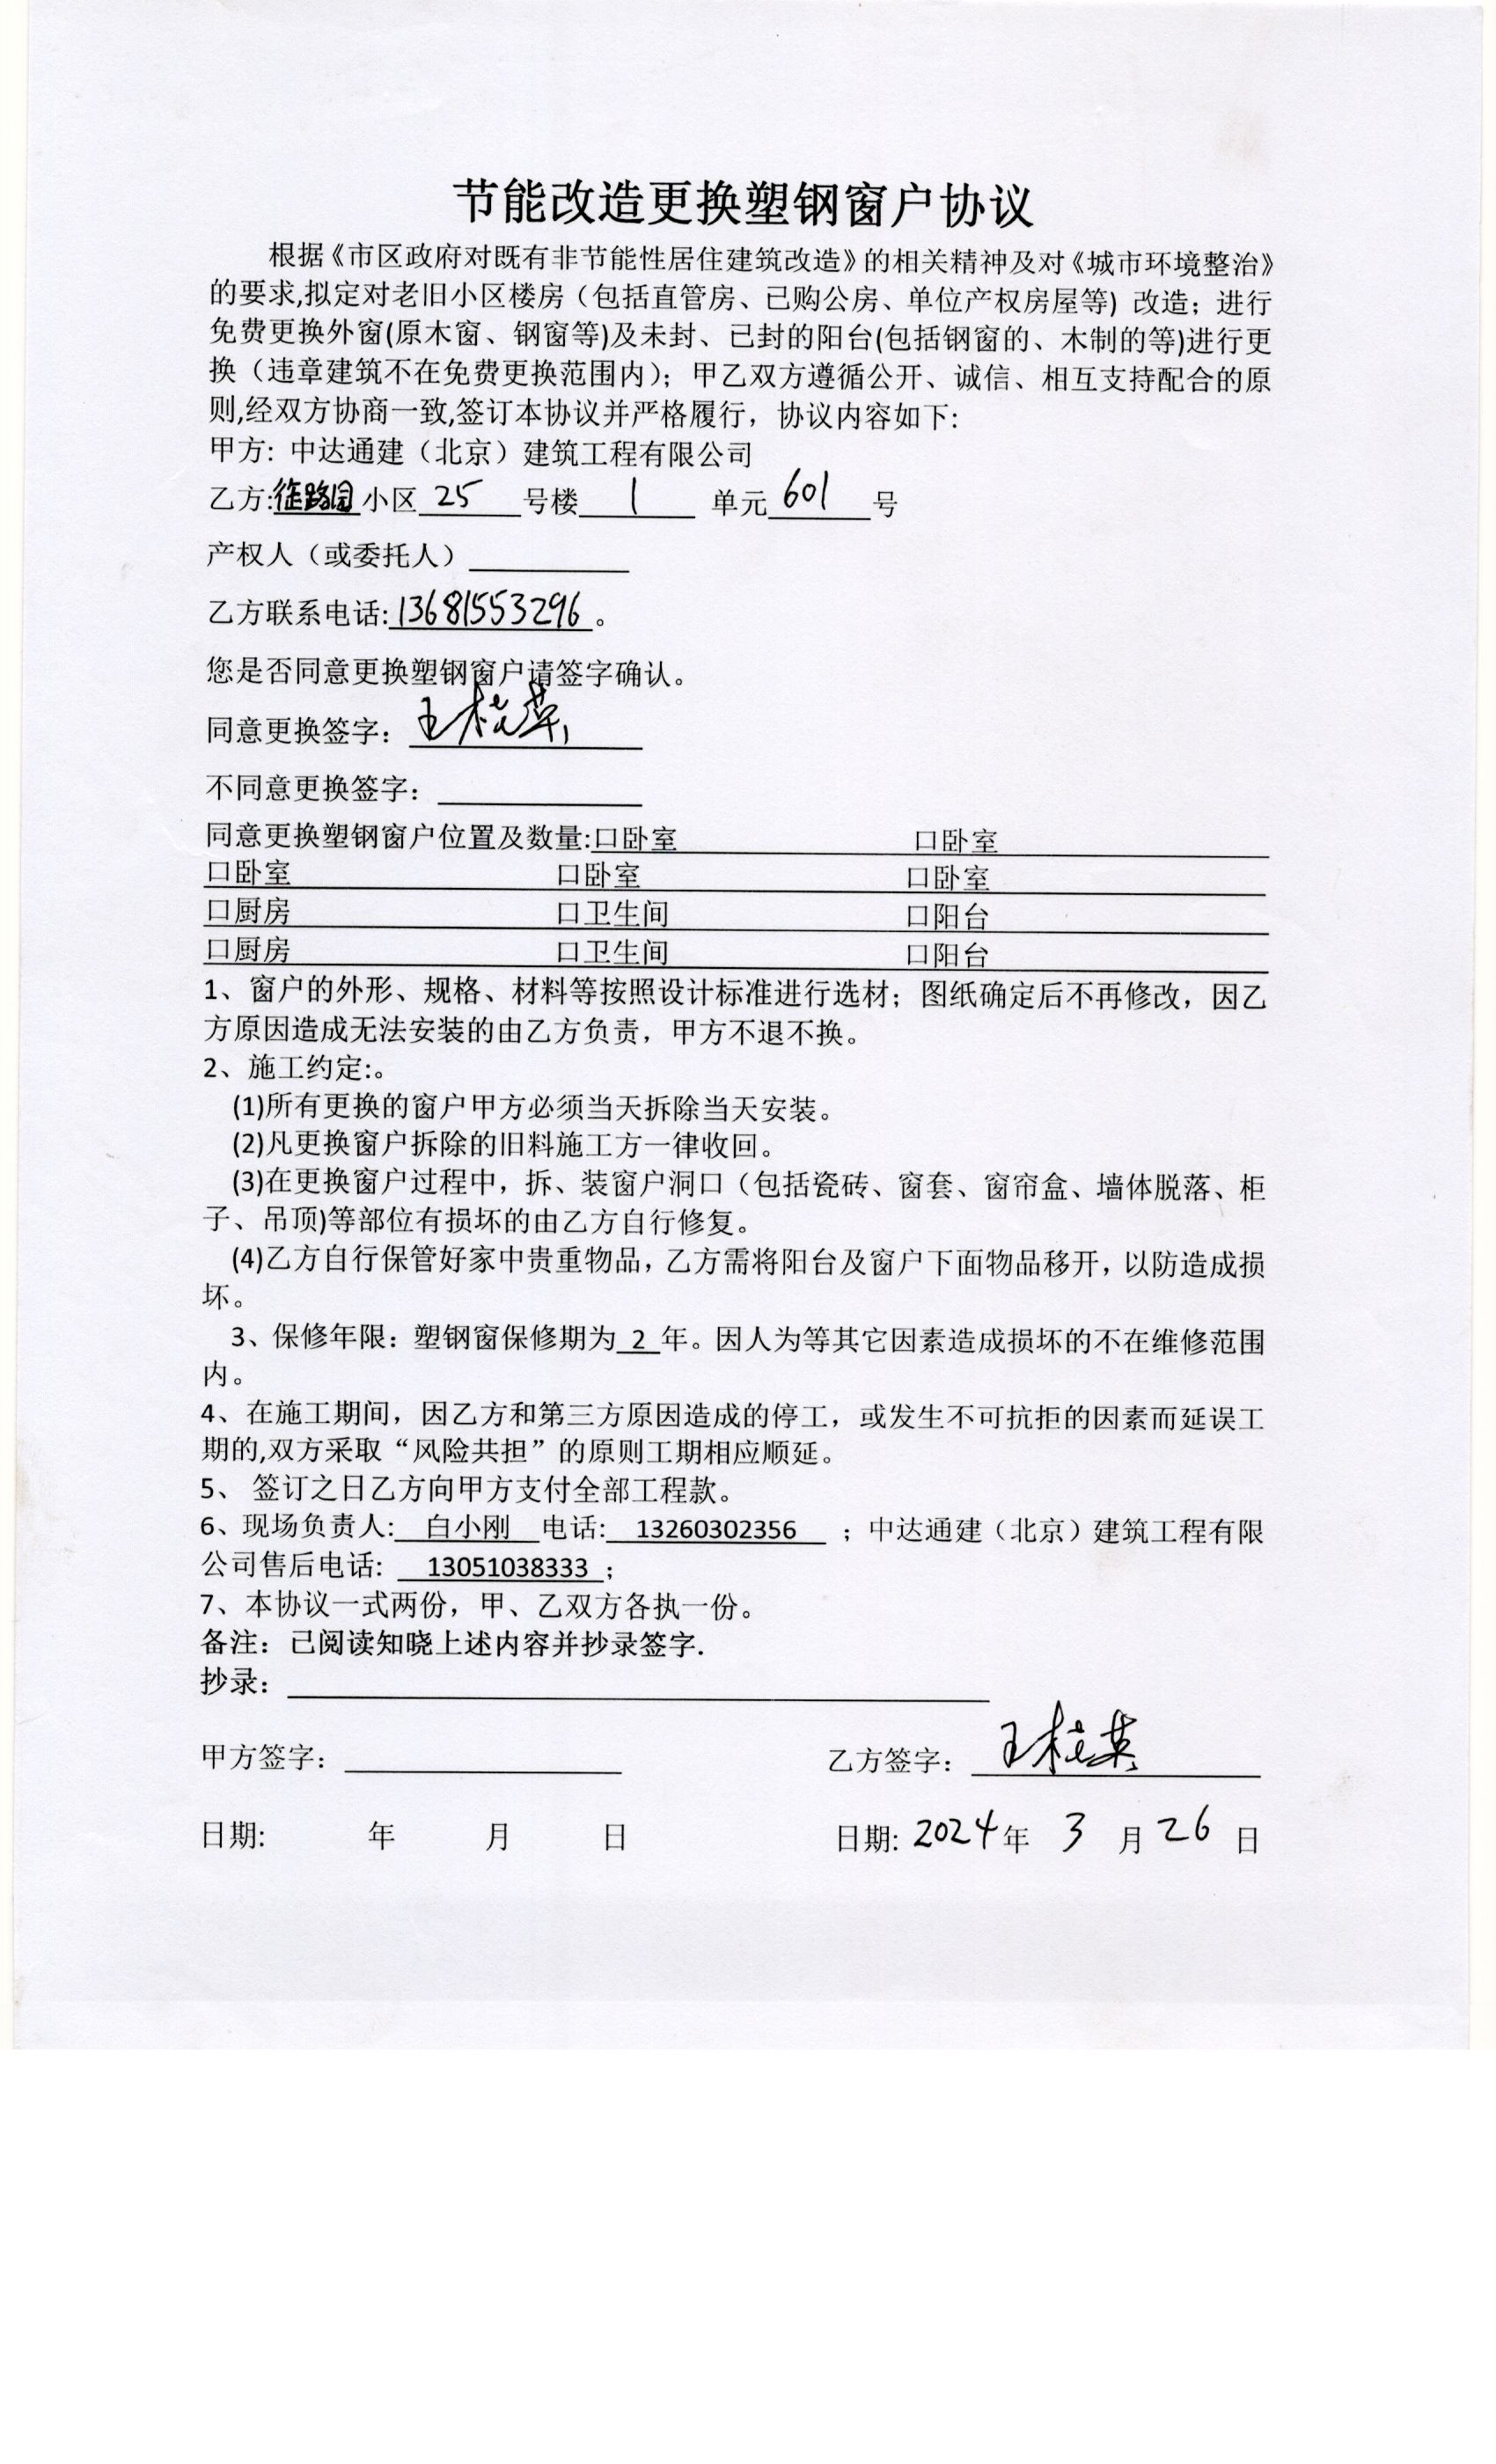 节能改造更换塑钢窗户协议
根据《市区政府对既有非节能性居住建筑改造》的相关精神及对《城市环境整治》
的要求,拟定对老旧小区楼房（包括直管房、已购公房、单位产权房屋等) 改造；进行
免费更换外窗(原木窗、钢窗等)及未封、已封的阳台(包括钢窗的、木制的等)进行更
换（违章建筑不在免费更换范围内)；甲乙双方遵循公开、诚信、相互支持配合的原
则,经双方协商一致,签订本协议并严格履行，协议内容如下:
甲方: 中达通建（北京）建筑工程有限公司
乙方: 小区 25 号楼 1 单元 601 号
产权人（或委托人）
乙方联系电话: 13681553296 。
您是否同意更换塑钢窗户请签字确认。
同意更换签字： 王桂英
不同意更换签字：
同意更换塑钢窗户位置及数量:口卧室 口卧室
口卧室 口卧室 口卧室
口厨房 口卫生间 口阳台
口厨房 口卫生间 口阳台
1、窗户的外形、规格、材料等按照设计标准进行选材；图纸确定后不再修改，因乙
方原因造成无法安装的由乙方负责，甲方不退不换。
2、施工约定:。
(1)所有更换的窗户甲方必须当天拆除当天安装。
(2)凡更换窗户拆除的旧料施工方一律收回。
(3)在更换窗户过程中，拆、装窗户洞口（包括瓷砖、窗套、窗帘盒、墙体脱落、柜
子、吊顶)等部位有损坏的由乙方自行修复。
(4)乙方自行保管好家中贵重物品，乙方需将阳台及窗户下面物品移开，以防造成损
坏。
3、保修年限：塑钢窗保修期为 2 年。因人为等其它因素造成损坏的不在维修范围
内。
4、在施工期间，因乙方和第三方原因造成的停工，或发生不可抗拒的因素而延误工
期的,双方采取“风险共担”的原则工期相应顺延。
5、 签订之日乙方向甲方支付全部工程款。
6、现场负责人: 白小刚 电话: 13260302356 ；中达通建（北京）建筑工程有限
公司售后电话: 13051038333 ；
7、本协议一式两份，甲、乙双方各执一份。
备注：已阅读知晓上述内容并抄录签字.
抄录：
甲方签字： 乙方签字： 王桂英
日期: 年 月 日 日期: 2024年 3 月 26 日